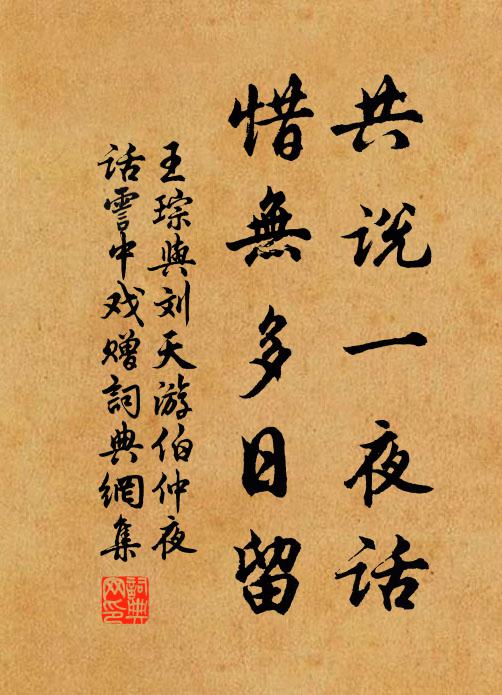 共说一夜话
惜無多日留
王琮與刘天游伯仲夜
话雲中戏赠詞典網集
詞典
网印